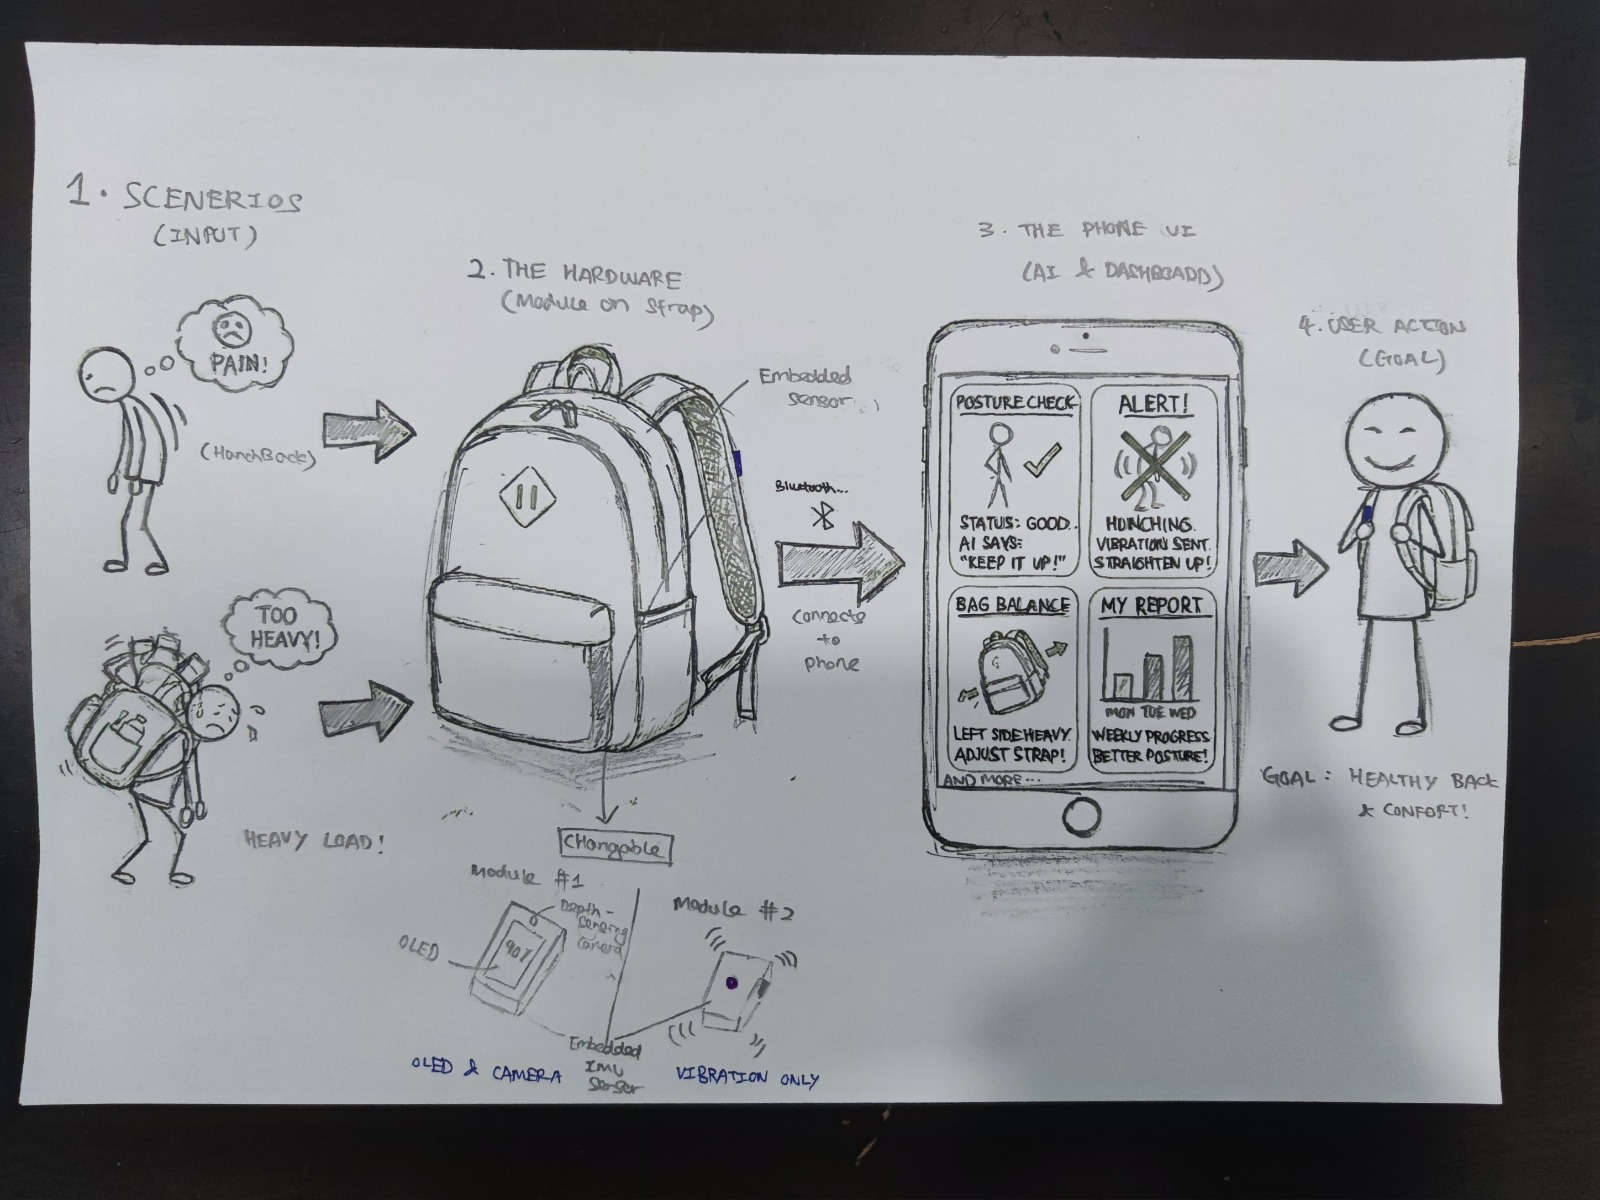 1. SCENERIOS
(INPUT)
PAIN!
(HunchBack)
TOO
HEAVY!
HEAVY LOAD!
2. THE HARDWARE
(Module on Strap)
Embedded
sensor
Bluetooth...
Connects
to
phone
CHangable
Module #1
Depth-
Sensing
Camera
OLED
90%
Module #2
Embedded
IMU
Sensor
OLED & CAMERA
VIBRATION ONLY
3. THE PHONE UI
(AI & DASHBOADD)
POSTURE CHECK
STATUS: GOOD.
AI SAYS:
"KEEP IT UP!"
ALERT!
HUNCHING.
VIBRATION SENT.
STRAIGHTEN UP!
BAG BALANCE
LEFT SIDE HEAVY.
ADJUST STRAP!
MY REPORT
MON TUE WED
WEEKLY PROGRESS
BETTER POSTURE!
AND MORE...
4. USER ACTION
(GOAL)
GOAL: HEALTHY BACK
& CONFORT!